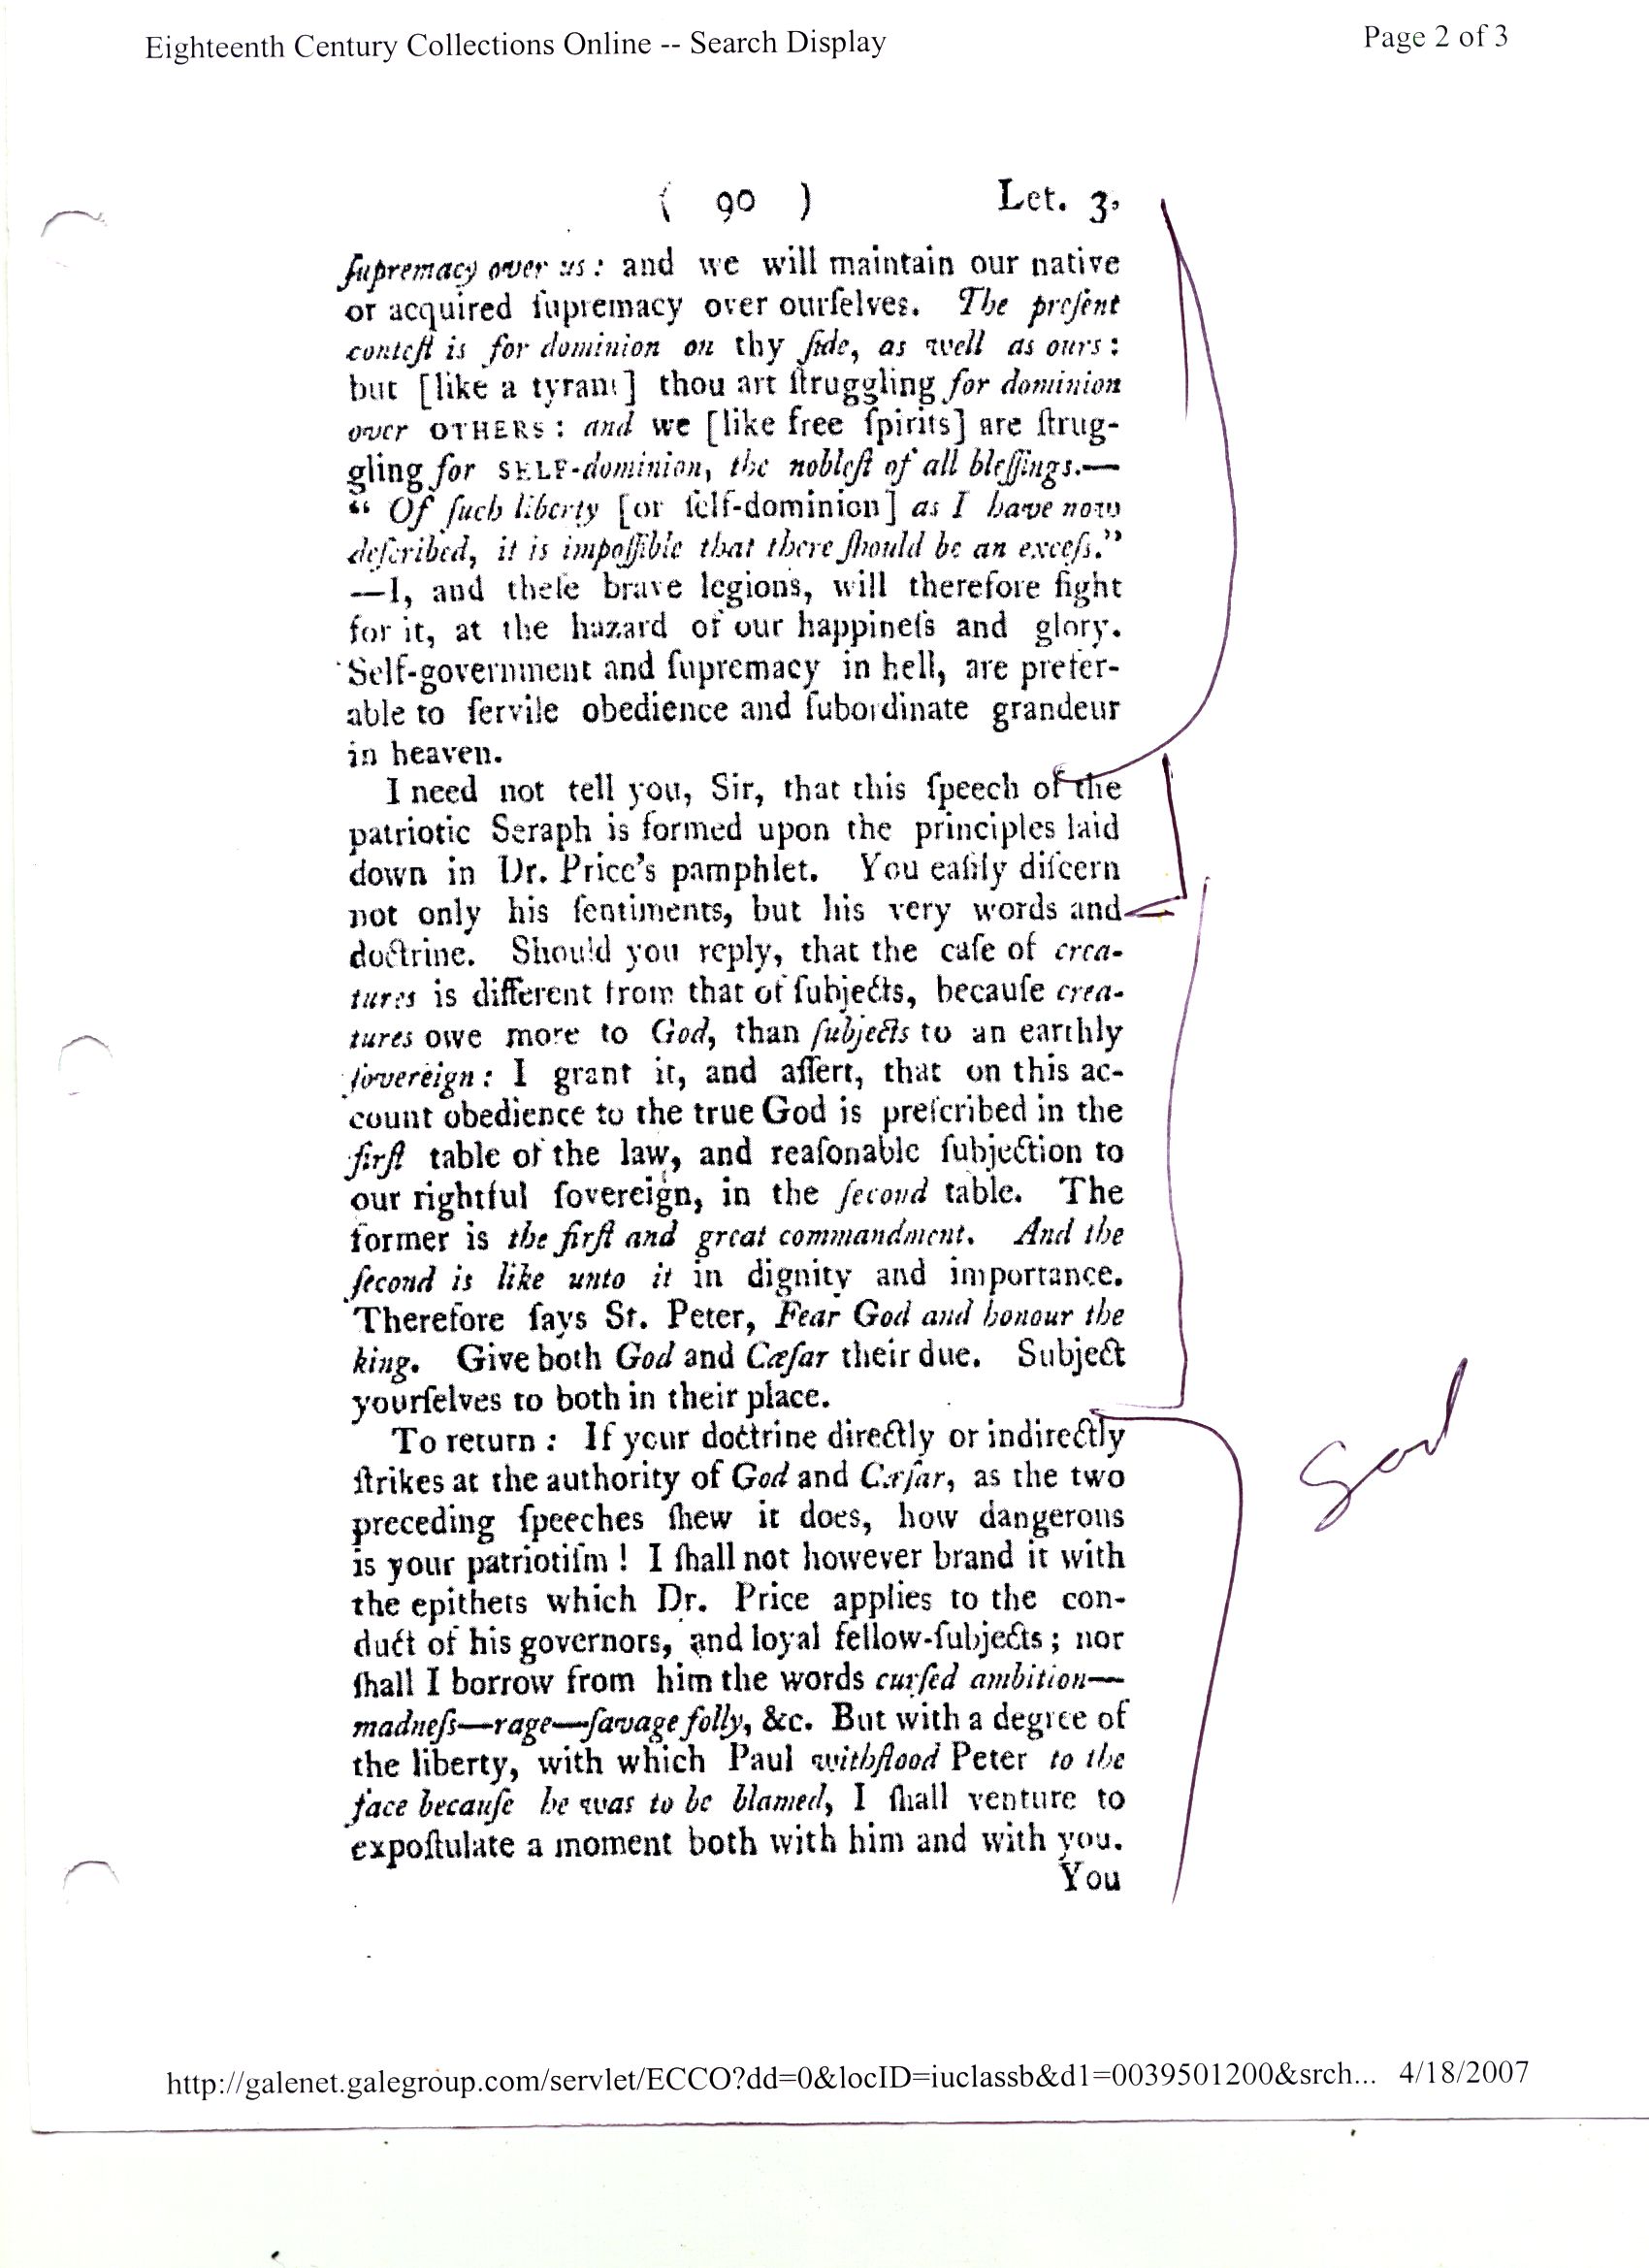 Eighteenth Century Collections Online -- Search Display
Page 2 of 3
( 90 ) Let. 3.
ſupremacy over us: and we will maintain our native
or acquired ſupremacy over ourſelves. The preſent
conteſt is for dominion on thy ſide, as well as ours:
but [like a tyrant] thou art ſtruggling for dominion
over OTHERS: and we [like free ſpirits] are ſtrug-
gling for SELF-dominion, the nobleſt of all bleſſings.—
“ Of ſuch liberty [or ſelf-dominion] as I have now
deſcribed, it is impoſſible that there ſhould be an exceſs.”
—I, and theſe brave legions, will therefore fight
for it, at the hazard of our happineſs and glory.
Self-government and ſupremacy in hell, are prefer-
able to ſervile obedience and ſubordinate grandeur
in heaven.
I need not tell you, Sir, that this ſpeech of the
patriotic Seraph is formed upon the principles laid
down in Dr. Price's pamphlet. You eaſily diſcern
not only his ſentiments, but his very words and
doctrine. Should you reply, that the caſe of crea-
tures is different from that of ſubjects, becauſe crea-
tures owe more to God, than ſubjects to an earthly
ſovereign: I grant it, and aſſert, that on this ac-
count obedience to the true God is preſcribed in the
firſt table of the law, and reaſonable ſubjection to
our rightful ſovereign, in the ſecond table. The
former is the firſt and great commandment. And the
ſecond is like unto it in dignity and importance.
Therefore ſays St. Peter, Fear God and honour the
king. Give both God and Cæſar their due. Subject
yourſelves to both in their place.
To return: If your doctrine directly or indirectly
ſtrikes at the authority of God and Cæſar, as the two
preceding ſpeeches ſhew it does, how dangerous
is your patriotiſm! I ſhall not however brand it with
the epithets which Dr. Price applies to the con-
duct of his governors, and loyal fellow-ſubjects; nor
ſhall I borrow from him the words curſed ambition—
madneſs—rage—ſavage folly, &c. But with a degree of
the liberty, with which Paul withſtood Peter to the
face becauſe he was to be blamed, I ſhall venture to
expoſtulate a moment both with him and with you.
You
http://galenet.galegroup.com/servlet/ECCO?dd=0&locID=iuclassb&d1=0039501200&srch... 4/18/2007